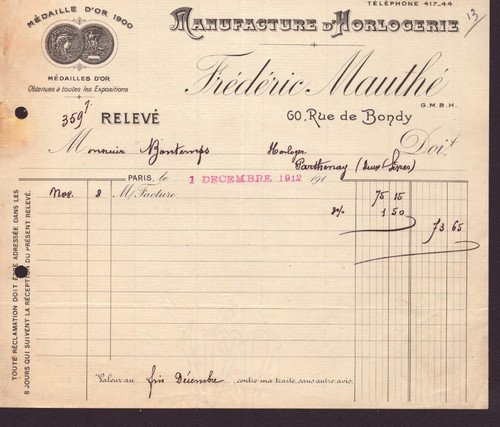 TÉLÉPHONE 417-44
13
MÉDAILLE D'OR 1900
MANUFACTURE D'HORLOGERIE
MÉDAILLES D'OR
Obtenues à toutes les Expositions
Frédéric Mauthé
G.M.B.H.
3597
RELEVÉ
60, Rue de Bondy
Monsieur Bontemps Horloger Doit
Parthenay (Deux Sèvres)
PARIS, le 1 DECEMBRE 1912 191
Nov. 8 M/Facture 75 15
2% 1 50
73 65
TOUTE RÉCLAMATION DOIT ÊTRE ADRESSÉE DANS LES
8 JOURS QUI SUIVENT LA RÉCEPTION DU PRÉSENT RELEVÉ.
Valeur au fin Décembre contre ma traite, sans autre avis.